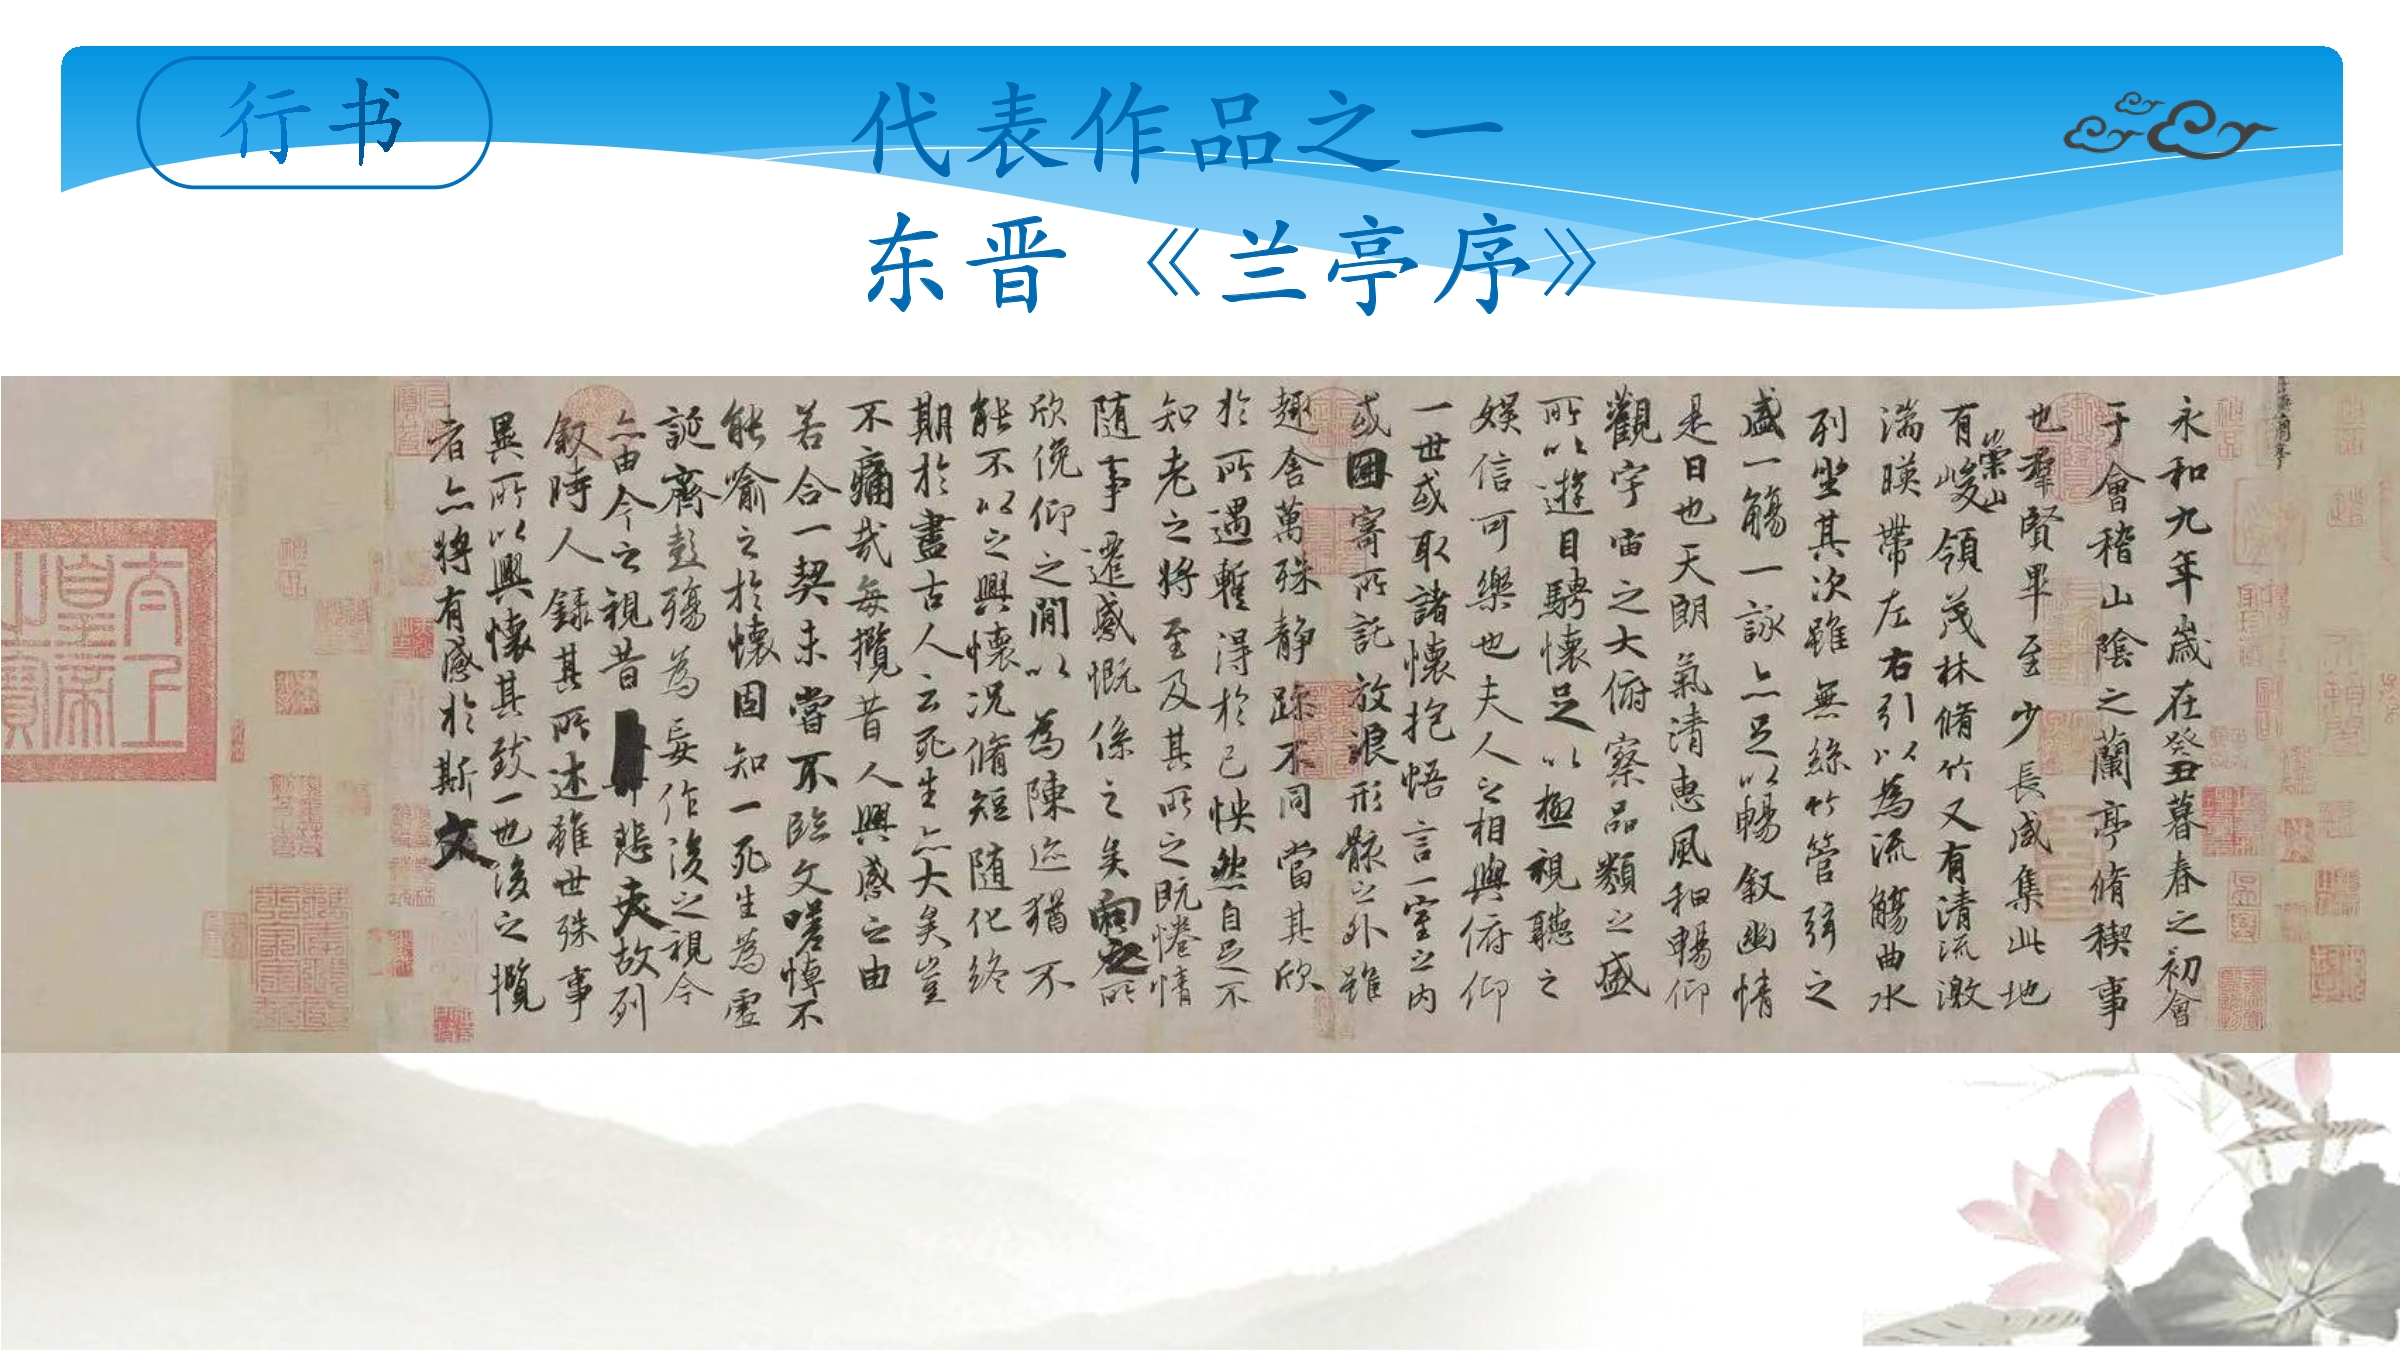 行书
代表作品之一
东晋 《兰亭序》
永和九年歲在癸丑暮春之初會
于會稽山陰之蘭亭脩稧事
也羣賢畢至少長咸集此地
有崇山峻領茂林脩竹又有清流激
湍暎帶左右引以為流觴曲水
列坐其次雖無絲竹管弦之
盛一觴一詠亦足以暢敘幽情
是日也天朗氣清惠風和暢仰
觀宇宙之大俯察品類之盛
所以遊目騁懷足以極視聽之
娛信可樂也夫人之相與俯仰
一世或取諸懷抱悟言一室之內
或因寄所託放浪形骸之外雖
趣舍萬殊靜躁不同當其欣
於所遇暫得於己怏然自足不
知老之將至及其所之既惓情
隨事遷感慨係之矣向之所
欣俛仰之閒以為陳迹猶不
能不以之興懷況脩短隨化終
期於盡古人云死生亦大矣豈
不痛哉每攬昔人興感之由
若合一契未嘗不臨文嗟悼不
能喻之於懷固知一死生為虛
誕齊彭殤為妄作後之視今
亦由今之視昔悲夫故列
敘時人錄其所述雖世殊事
異所以興懷其致一也後之攬
者亦將有感於斯文
太上
皇帝
之寶